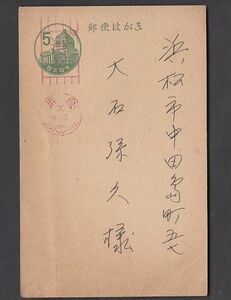 郵便はがき
5
浜松市中田島町五七
大石孫久様
30